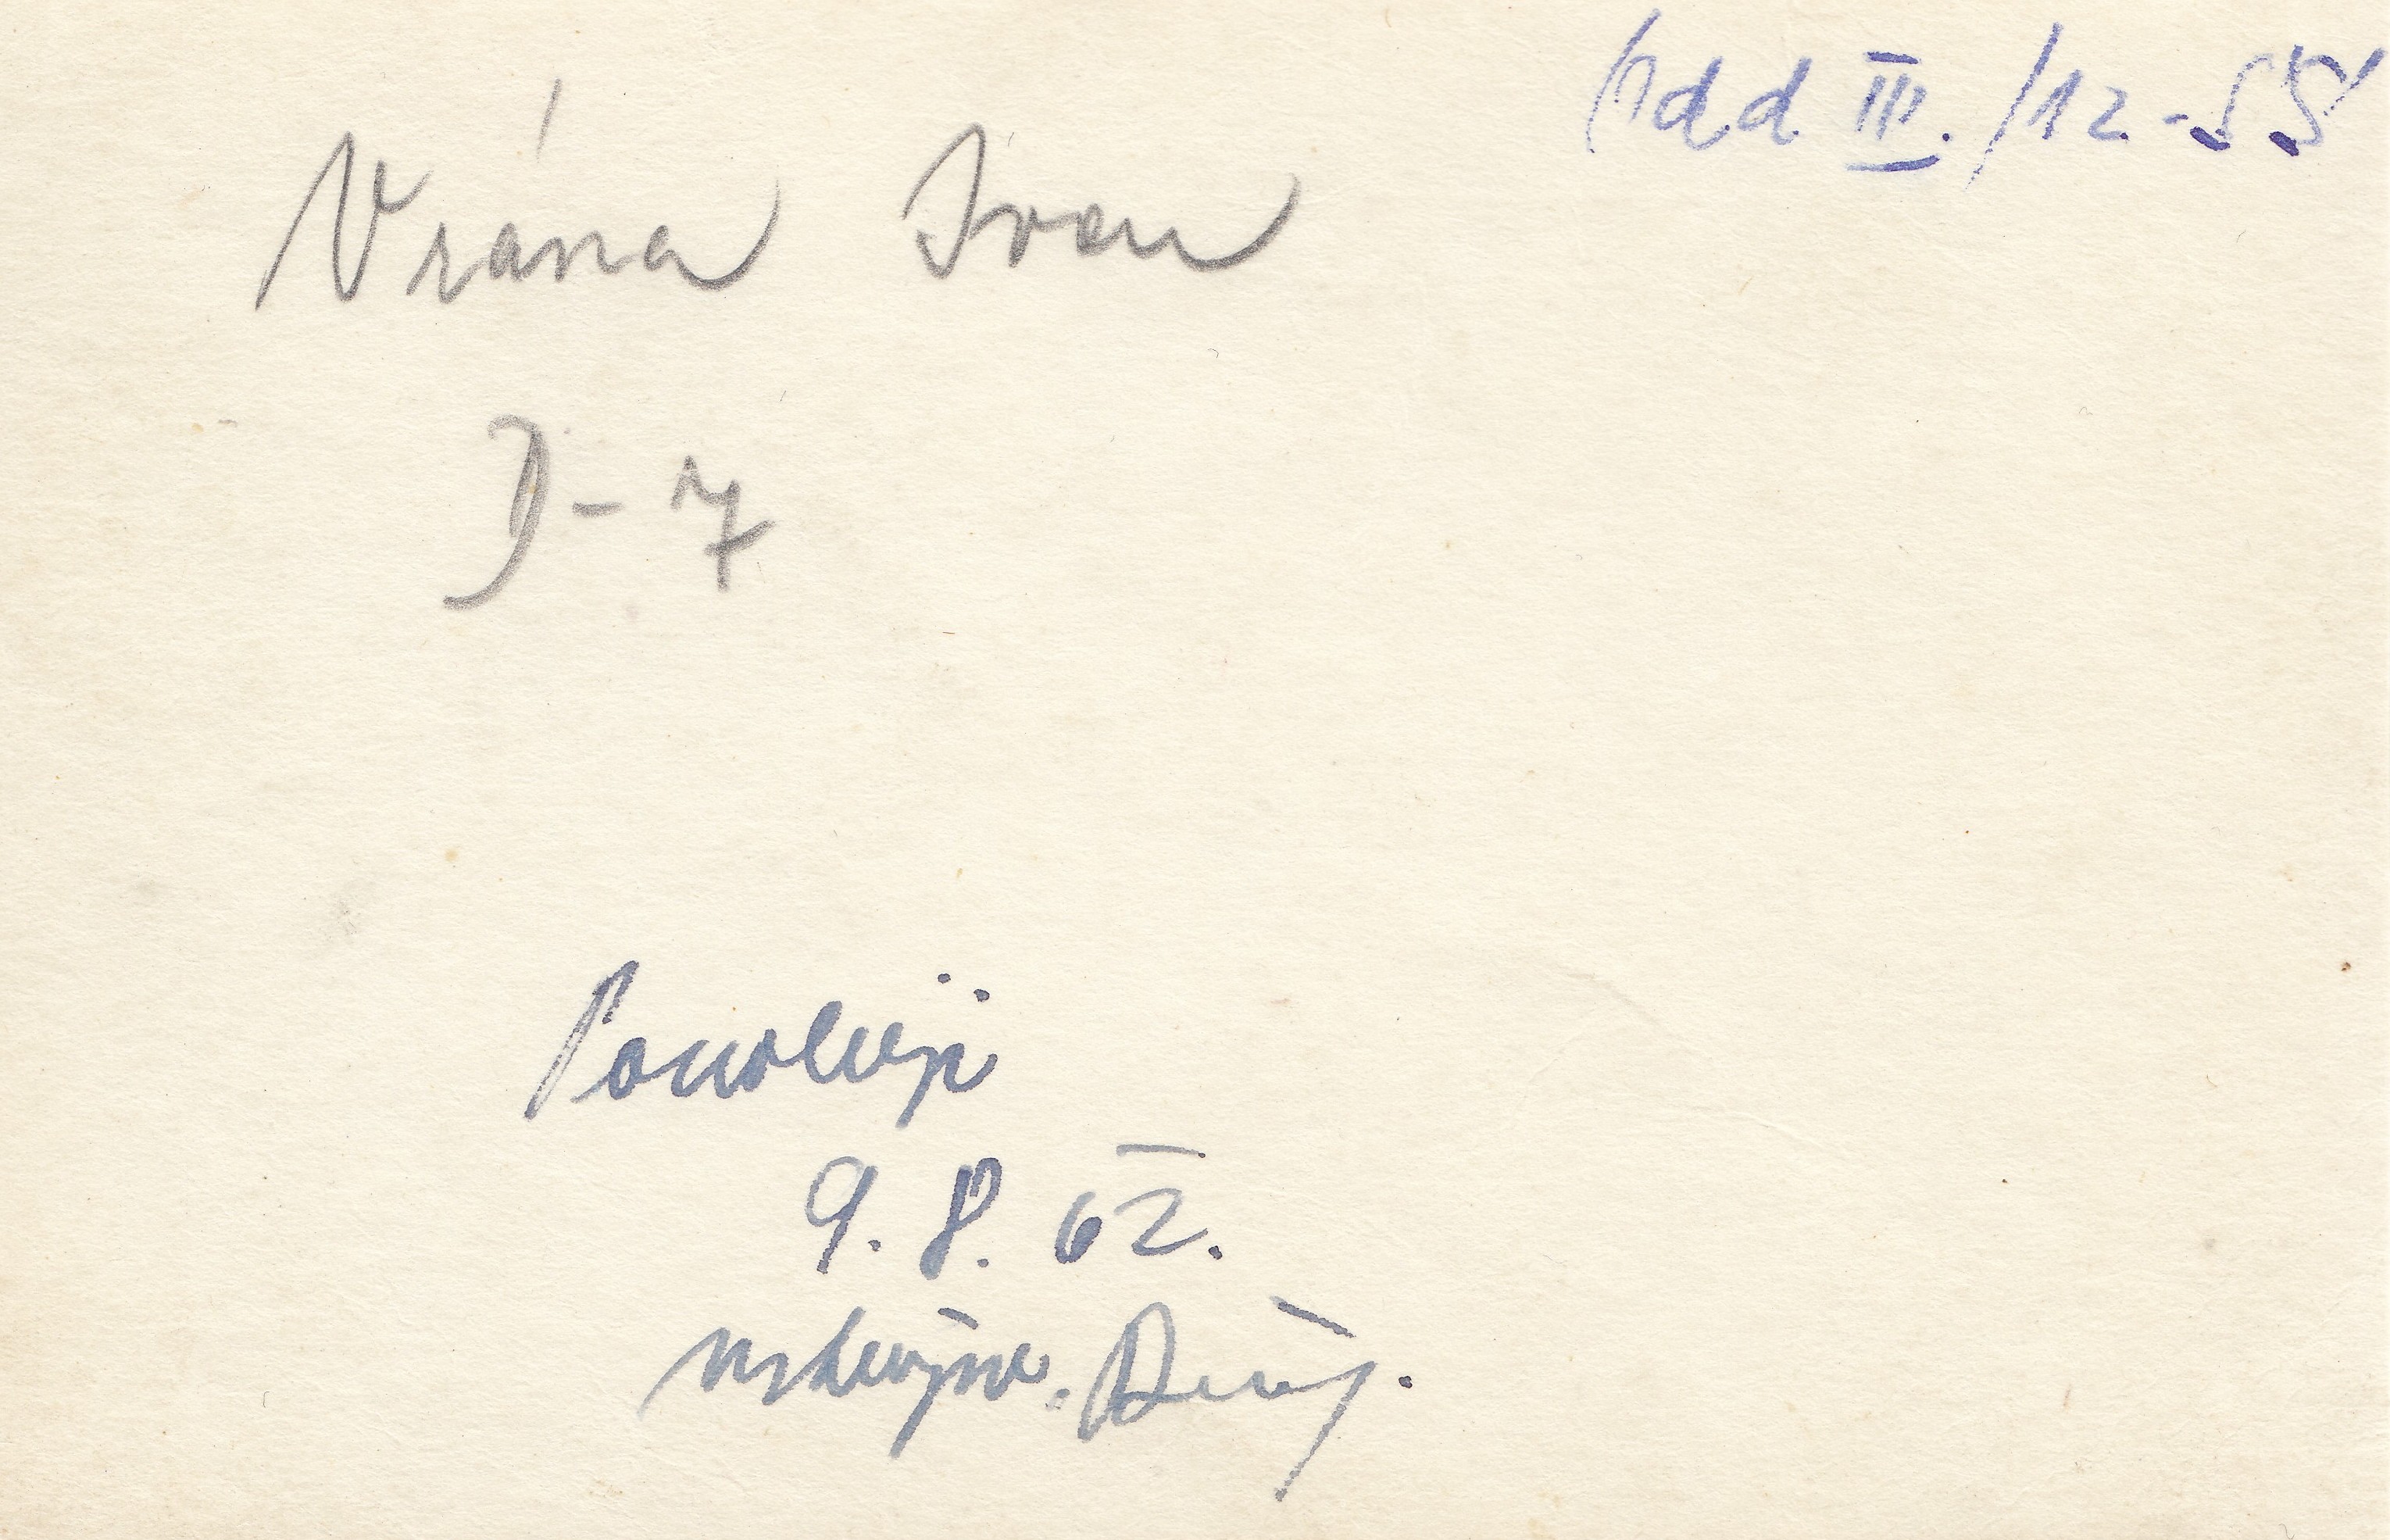 Odd III. /12-55
Vrána Ivan
D-7
Povoluji
9. 8. 62.